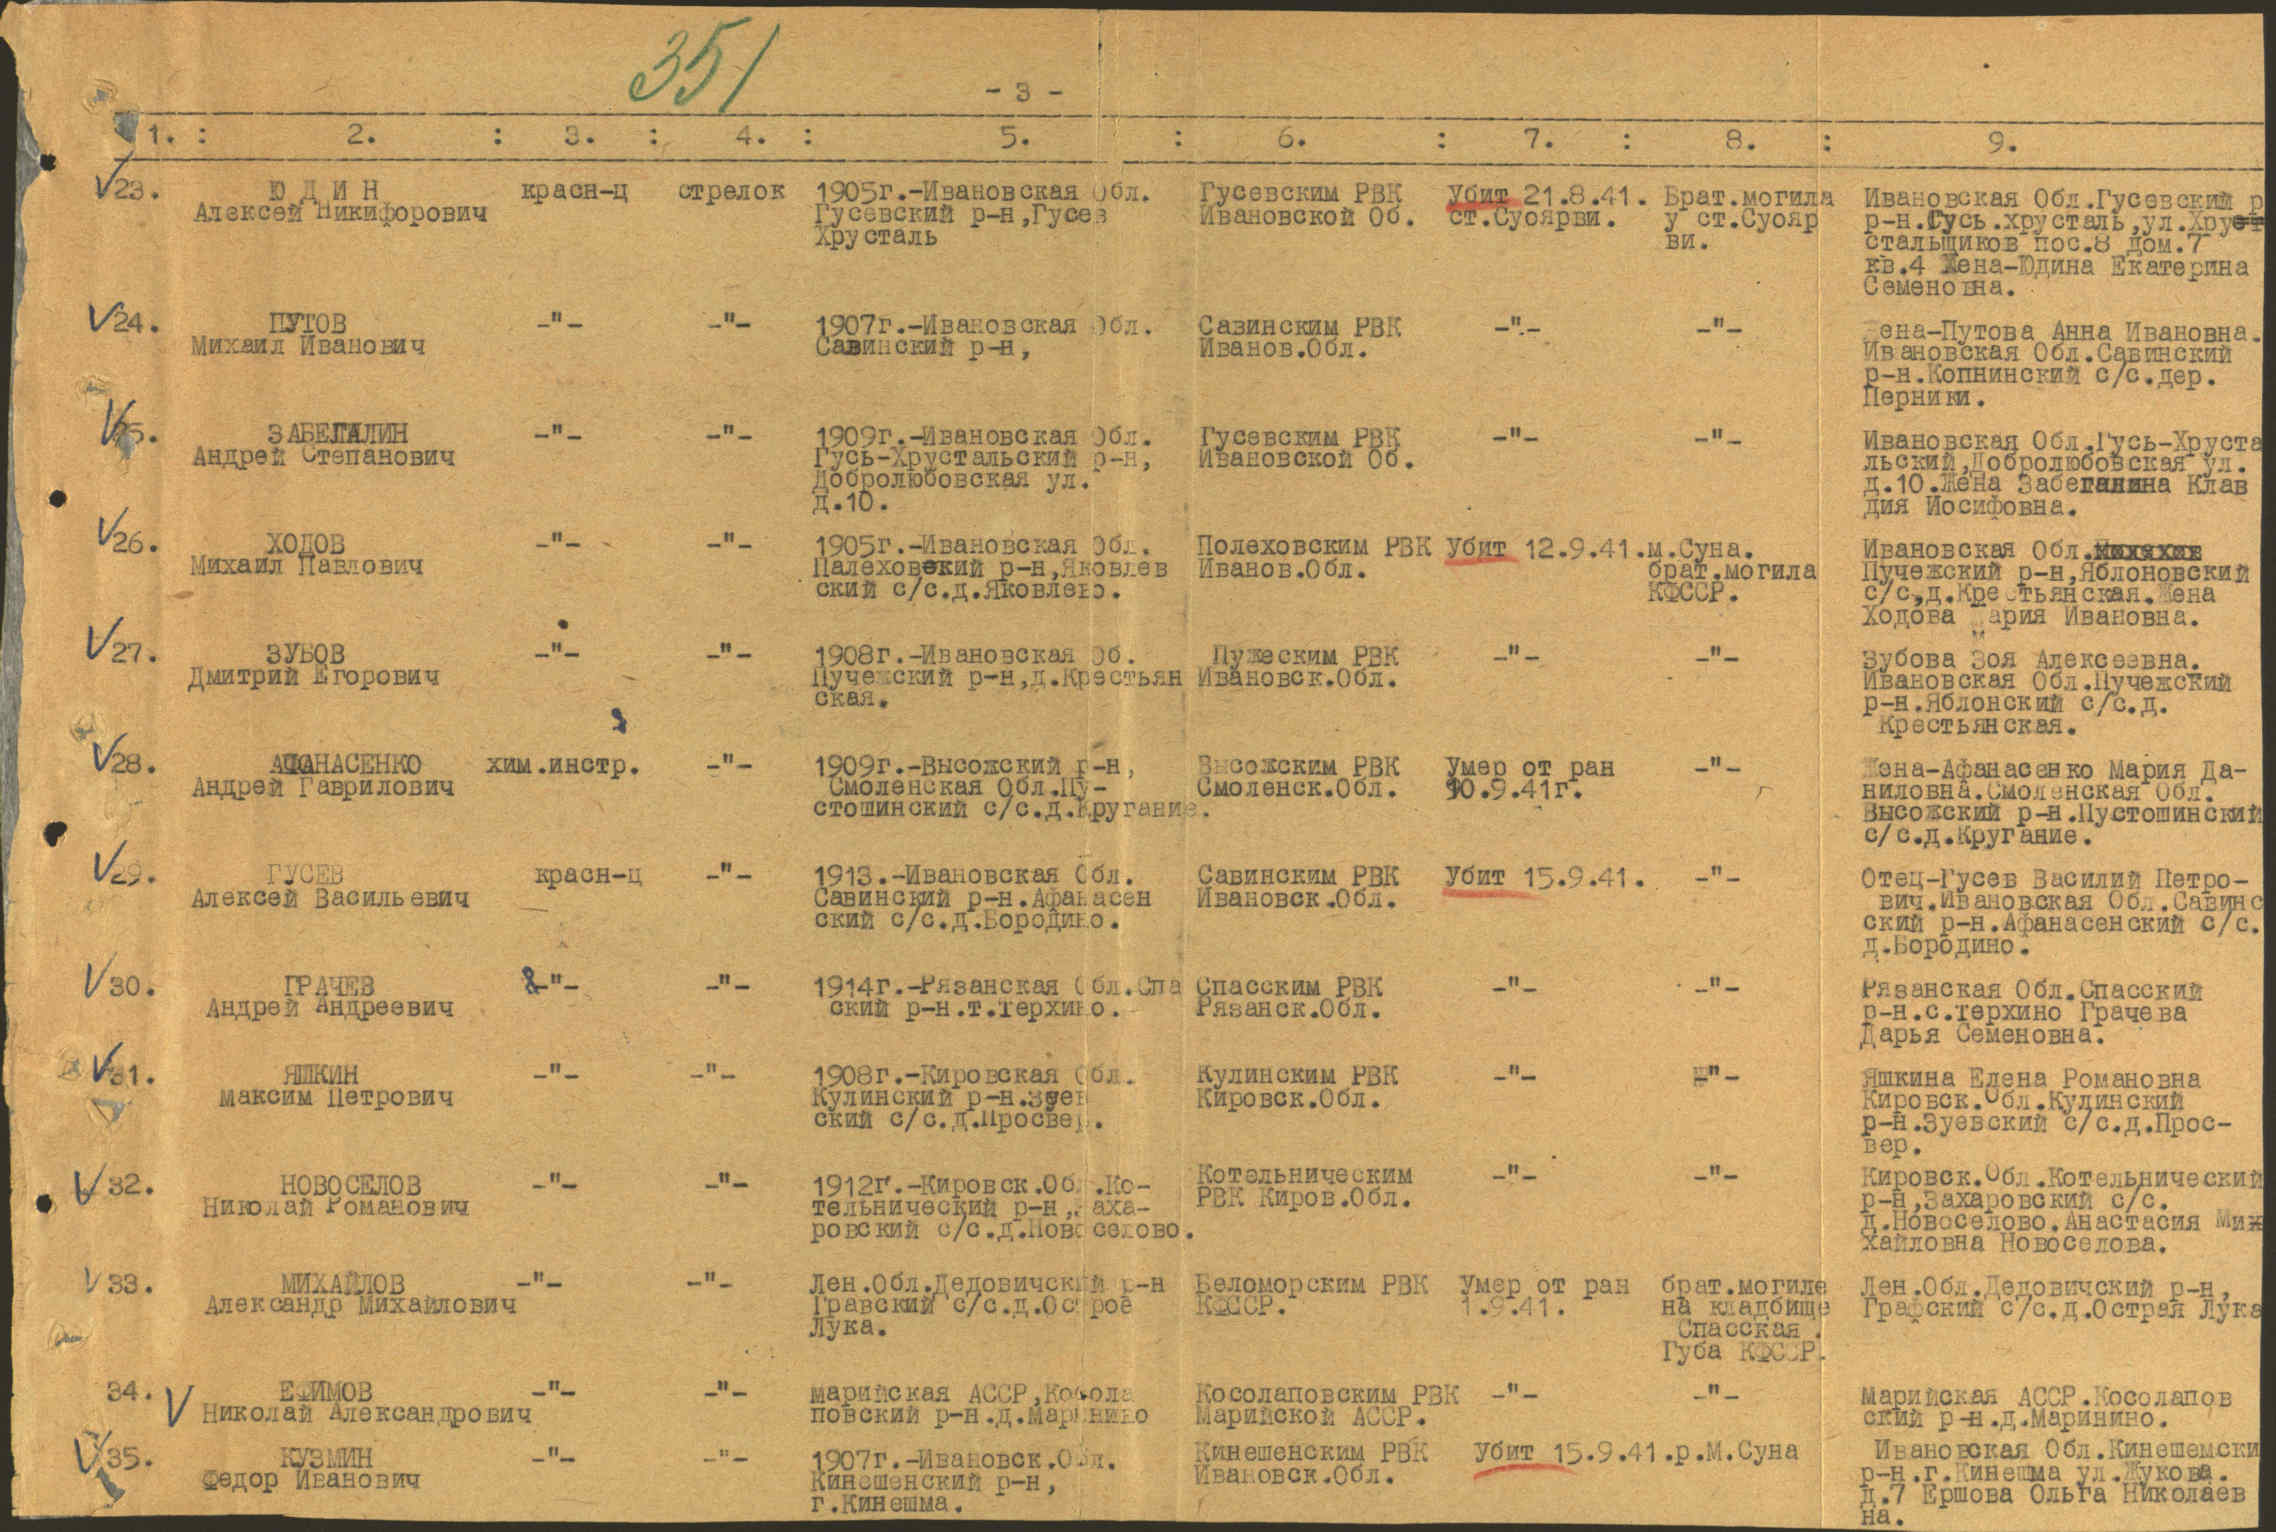 351
- 3 -
1. : 2. : 3. : 4. : 5. : 6. : 7. : 8. : 9.
23. Ю Д И Н красн-ц стрелок 1905г.-Ивановская Обл. Гусевским РВК Убит 21.8.41. Брат.могила Ивановская Обл.Гусевский р
Алексей Никифорович Гусевский р-н,Гусев Ивановской Об. ст.Суоярви. у ст.Суояр р-н.Гусь.хрусталь,ул.Хруст
Хрусталь ви. стальщиков пос.8 дом.7
кв.4 Жена-Юдина Екатерина
Семеновна.
24. ПУТОВ -"- -"- 1907г.-Ивановская Обл. Савинским РВК -"- -"- Жена-Путова Анна Ивановна.
Михаил Иванович Савинский р-н, Иванов.Обл. Ивановская Обл.Савинский
р-н.Копнинский с/с.дер.
Перники.
25. ЗАБЕГАЛИН -"- -"- 1909г.-Ивановская Обл. Гусевским РВК -"- -"- Ивановская Обл.Гусь-Хруста
Андрей Степанович Гусь-Хрустальский р-н, Ивановской Об. льский,Добролюбовская ул.
Добролюбовская ул. д.10.Жена Забегалина Клав
д.10. дия Иосифовна.
26. ХОДОВ -"- -"- 1905г.-Ивановская Обл. Полеховским РВК Убит 12.9.41.м.Суна. Ивановская Обл.
Михаил Павлович Палеховский р-н,Яковлев Иванов.Обл. брат.могила Пучежский р-н,Яблоновский
ский с/с.д.Яковлево. КФССР. с/с,д.Крестьянская.Жена
Ходова Мария Ивановна.
27. ЗУБОВ -"- -"- 1908г.-Ивановская Об. Пужеским РВК -"- -"- Зубова Зоя Алексеевна.
Дмитрий Егорович Пучежский р-н,д.Крестьян Ивановск.Обл. Ивановская Обл.Пучежский
ская. р-н.Яблонский с/с.д.
Крестьянская.
28. АФАНАСЕНКО хим.инстр. -"- 1909г.-Высожский р-н, Высожским РВК Умер от ран -"- Жена-Афанасенко Мария Да-
Андрей Гаврилович Смоленская Обл.Пу- Смоленск.Обл. 10.9.41г. ниловна.Смоленская Обл.
стошинский с/с.д.Кругание. Высожский р-н.Пустошинский
с/с.д.Кругание.
29. ГУСЕВ красн-ц -"- 1913.-Ивановская Обл. Савинским РВК Убит 15.9.41. -"- Отец-Гусев Василий Петро-
Алексей Васильевич Савинский р-н.Афанасен Ивановск.Обл. вич.Ивановская Обл.Савинс
ский с/с.д.Бородино. ский р-н.Афанасенский с/с.
д.Бородино.
30. ГРАЧЕВ -"- -"- 1914г.-Рязанская Обл.Спа Спасским РВК -"- -"- Рязанская Обл.Спасский
Андрей Андреевич ский р-н.т.Терхино. Рязанск.Обл. р-н.с.Терхино Грачева
Дарья Семеновна.
31. ЯШКИН -"- -"- 1908г.-Кировская Обл. Кулинским РВК -"- -"- Яшкина Елена Романовна
Максим Петрович Кулинский р-н.Зуев Кировск.Обл. Кировск.Обл.Кулинский
ский с/с.д.Просвер. р-н.Зуевский с/с.д.Прос-
вер.
32. НОВОСЕЛОВ -"- -"- 1912г.-Кировск.Обл.Ко- Котельническим -"- -"- Кировск.Обл.Котельнический
Николай Романович тельнический р-н,Заха- РВК Киров.Обл. р-н,Захаровский с/с.
ровский с/с.д.Новоселово. д.Новоселово.Анастасия Мих
хайловна Новоселова.
33. МИХАЙЛОВ -"- -"- Лен.Обл.Дедовичский р-н Беломорским РВК Умер от ран брат.могиле Лен.Обл.Дедовичский р-н,
Александр Михайлович Гравский с/с.д.Острое КФССР. 1.9.41. на кладбище Графский с/с.д.Острая Лука
Лука. Спасская
Губа КФССР.
34. ЕФИМОВ -"- -"- Марийская АССР,Косола Косолаповским РВК -"- -"- Марийская АССР.Косолапов
Николай Александрович повский р-н.д.Маринино Марийской АССР. ский р-н.д.Маринино.
35. КУЗМИН -"- -"- 1907г.-Ивановск.Обл. Кинешенским РВК Убит 15.9.41.р.М.Суна Ивановская Обл.Кинешемски
Федор Иванович Кинешенский р-н, Ивановск.Обл. р-н.г.Кинешма ул.Жукова.
г.Кинешма. д.7 Ершова Ольга Николаев
на.